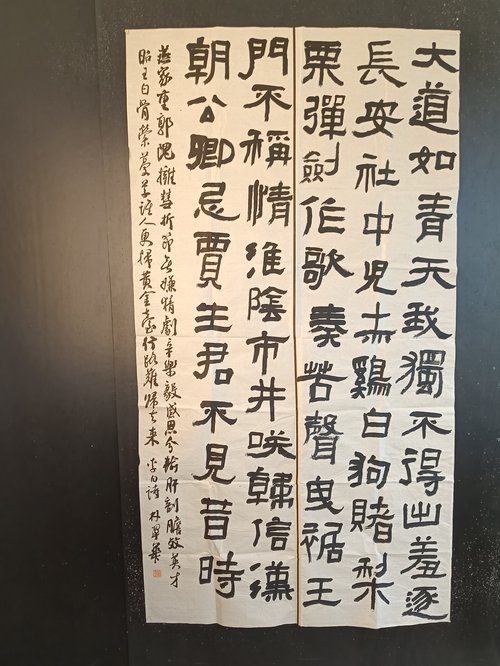 大道如青天我獨不得出羞逐
長安社中兒赤鷄白狗賭梨
栗彈劍作歌奏苦聲曳裾王
門不稱情淮陰市井咲韓信漢
朝公卿忌賈生君不見昔時
燕家重郭隗擁彗折節无嫌猜劇辛樂毅感恩分輸肝剖膽效英才
昭王白骨縈蔓草誰人更掃黃金臺行路難歸去來 李白詩